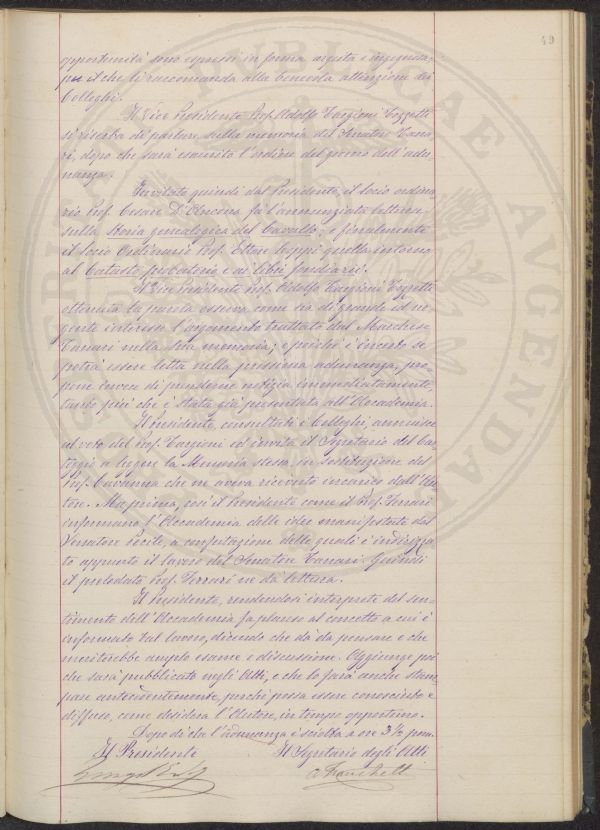 49
opportunità sono espressi in forma arguta e ingegnosa,
per il che li raccomanda alla benevola attenzione dei
Colleghi.
Il Vice Presidente Prof. Adolfo Targioni Tozzetti
si riserba di parlare, sulla memoria del Senatore Tana-
ri, dopo che sarà esaurito l'ordine del giorno dell'adu-
nanza.
Invitato quindi dal Presidente, il socio ordina-
rio Prof. Cesare D'Ancona fa l'annunziata lettura
sulla Storia genealogica del Cavallo; e finalmente
il socio Ordinario Prof. Ettore Coppi quella intorno
al Catasto probatorio e ai libri fondiarii.
Il Vice Presidente Prof. Adolfo Targioni Tozzetti
ottenuta la parola osserva come sia di grande ed ur-
gente interesse l'argomento trattato dal Marchese
Tanari nella sua memoria; e poichè è incerto se
potrà essere letta nella prossima adunanza, pro-
pone invece di prenderne notizia immediatamente,
tanto più che è stata già presentata all'Accademia.
Il Presidente, consultati i Colleghi, annuisce
al voto del Prof. Targioni ed invita il Segretario del Car-
teggio a leggere la Memoria stessa, in sostituzione del
Prof. Cavanna che ne aveva ricevuto incarico dall'Au-
tore. Ma prima, così il Presidente come il Prof. Ferrari
informano l'Accademia delle idee manifestate dal
Senatore Pecile, a confutazione delle quali è indirizza-
to appunto il lavoro del Senatore Tanari. Quindi
il prelodato Prof. Ferrari ne dà lettura.
Il Presidente, rendendosi interprete del sen-
timento dell'Accademia fa plauso al concetto a cui è
informato tal lavoro, dicendo che dà da pensare e che
meriterebbe ampio esame e discussione. Aggiunge poi
che sarà pubblicato negli Atti, e che lo farà anche stam-
pare antecedentemente, perchè possa essere conosciuto e
diffuso, come desidera l'Autore, in tempo opportuno.
Dopo di che l'adunanza è sciolta a ore 3 ½ pom.
Il Presidente Il Segretario degli Atti
A Franchetti